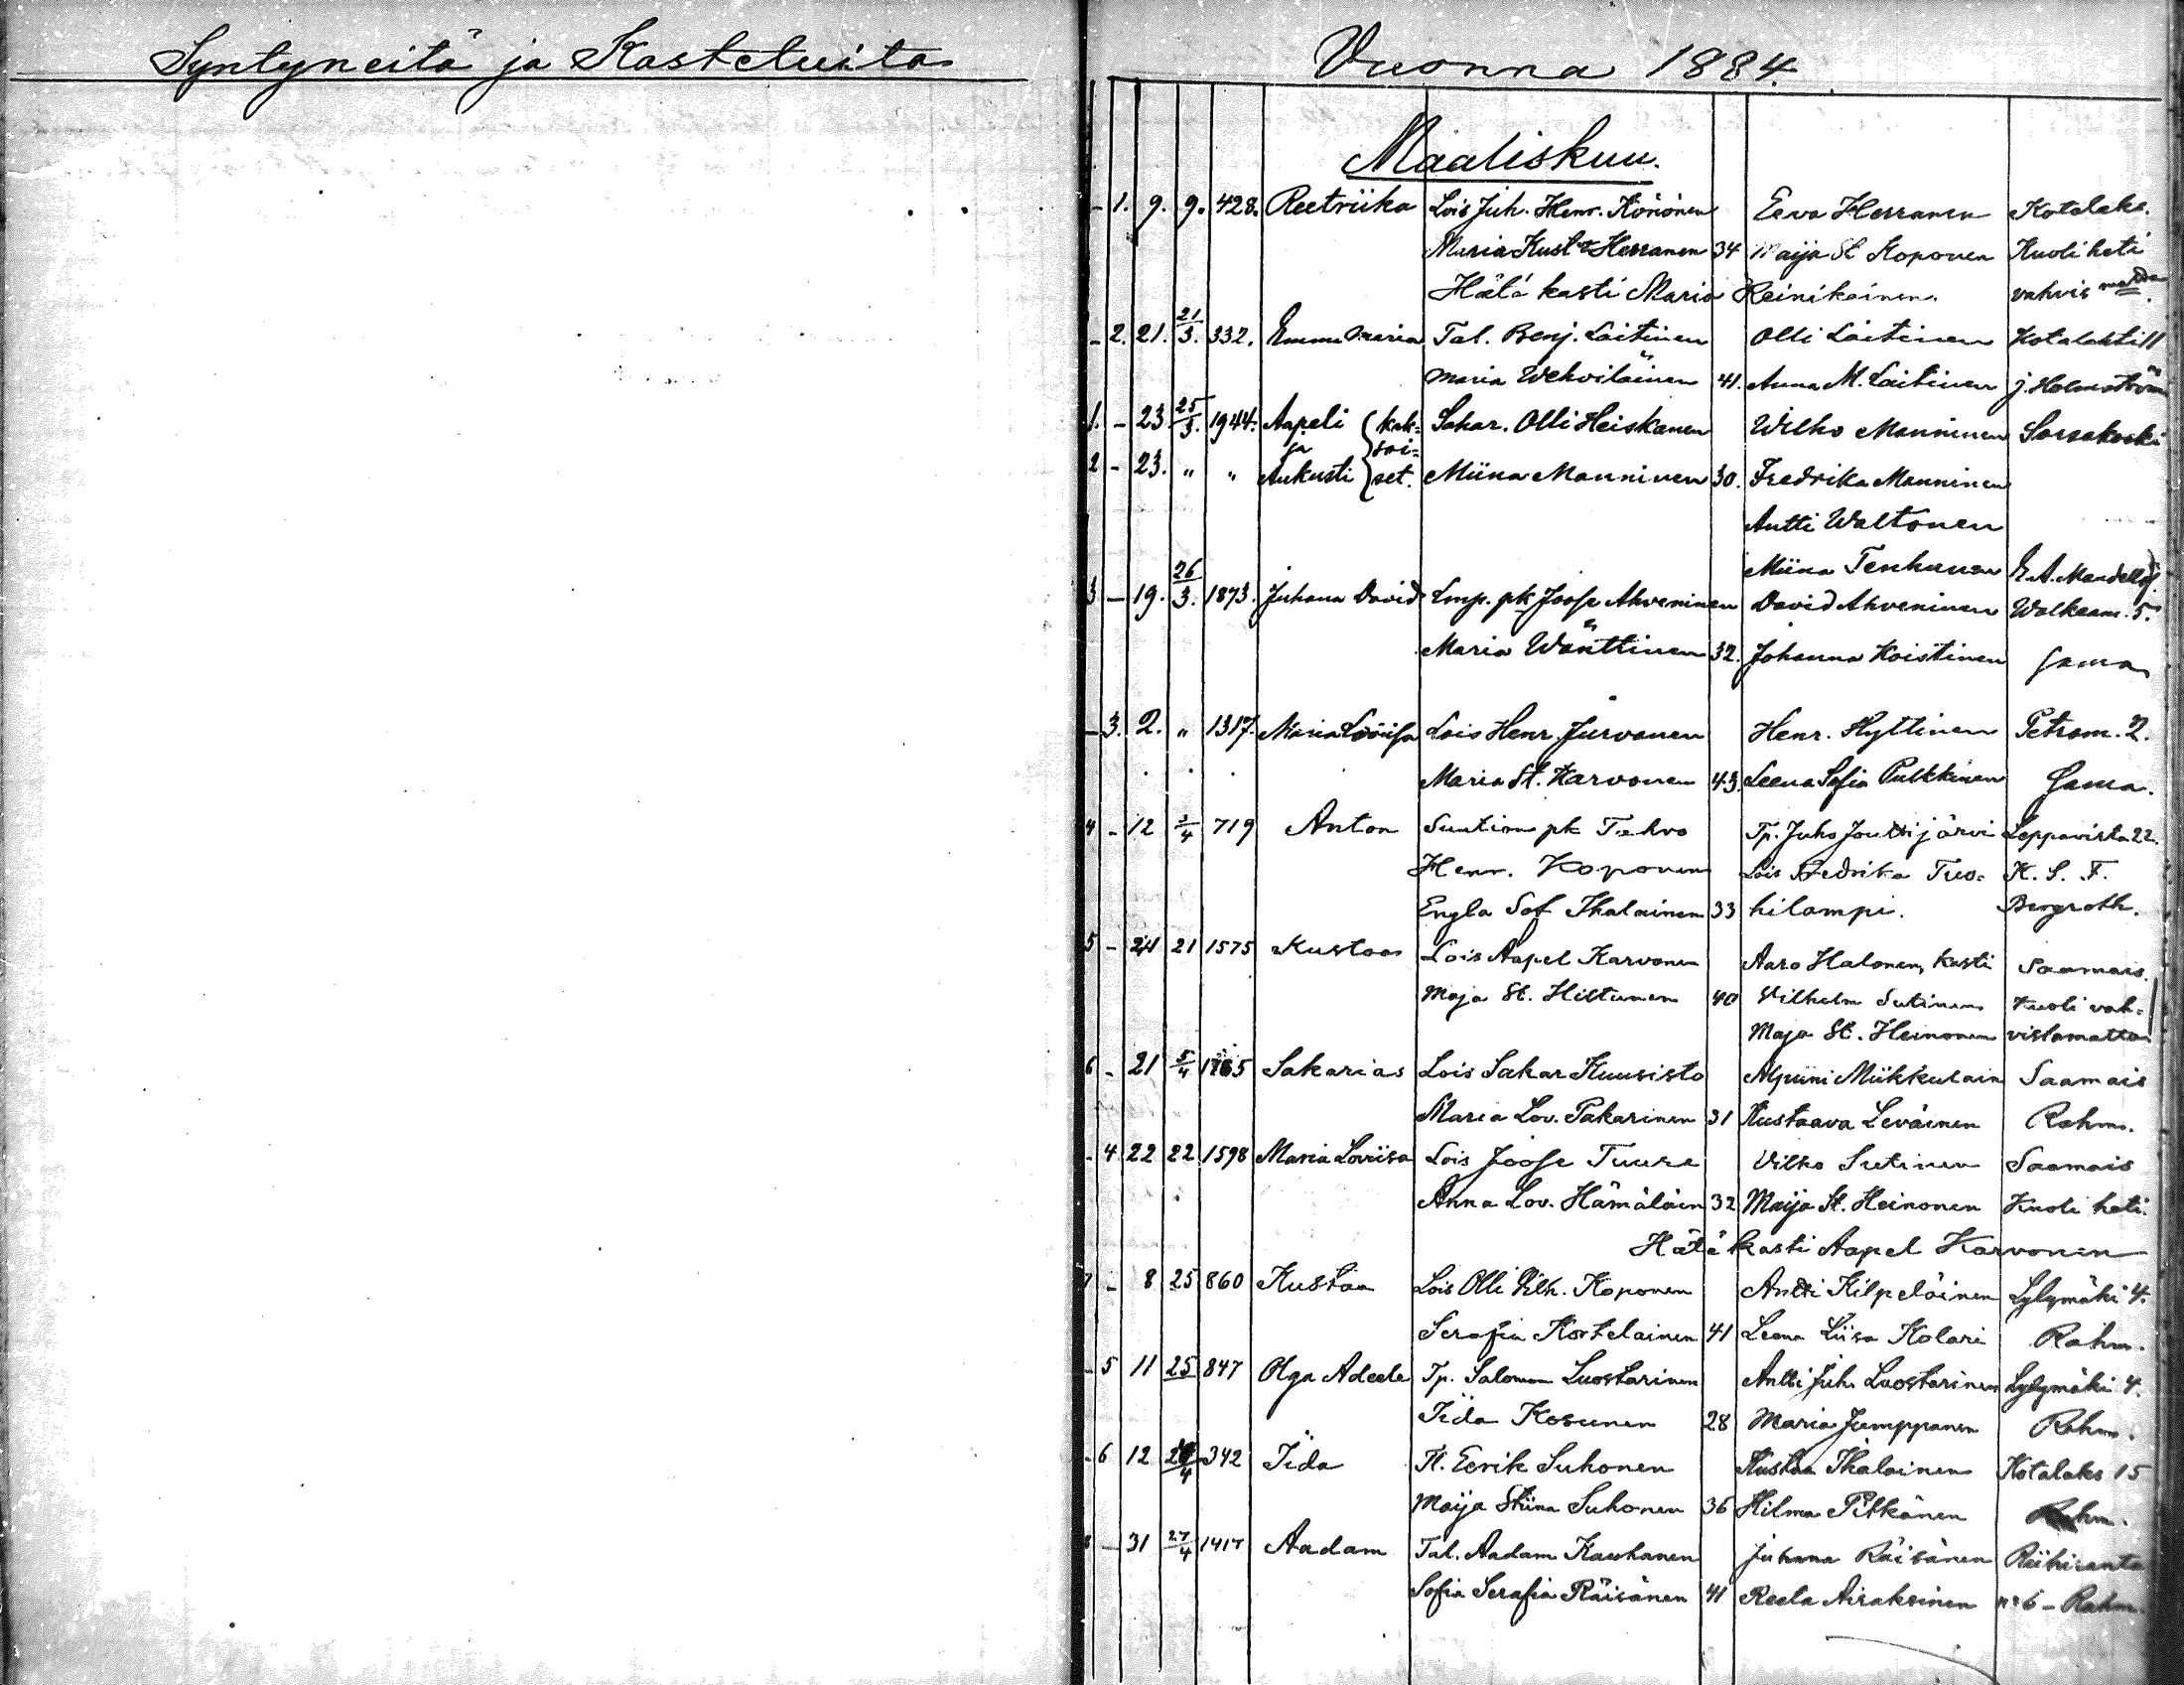 Syntyneitä ja Kasteluita
Vuonna 1884.
Maaliskuu.
- 1. 9. 9. 428. Reetriika Lois Juh. Henr. Könönen Eeva Herranen Kotalaks.
Maria Kust. Herranen 34 Maija St Koponen Kuoli heti
Hätä kasti Maria Reinikainen. vahvis
- 2. 21. 21/3. 332. Emma Maria Tal. Benj. Laitinen Olli Laitinen Kotalahti 11
Maria Wehviläinen 41. Anna M. Laitinen j. Holmström
1. - 23 25/3. 1944. Aapeli (kak= Sahar. Olli Heiskanen Wilho Manninen Sorsakoski
ja soi=
2 - 23. " " Aukusti set. Miina Manninen 30. Fredrika Manninen
Antti Waltonen
Miina Tenhunen E. A. Mandellöf.
3 - 19. 26/3. 1873. Juhana David Lmp. pk Joose Ahveninen David Ahveninen Walkeam. 5.
Maria Wänttinen 32. Johanna Koistinen sama
- 3. 2. " 1317. Maria Loviisa Lois Henr. Jurvanen Henr. Hyttinen Petrom. 2.
Maria St. Karvonen 43. Leena Sofia Pulkkinen sama.
4 - 12 3/4 719 Anton Suution pk Tahvo Tp. Juho Joutsijärvi Leppävirta 22.
Henr. Koponen Lois Fredrika Tuo= K. S. F.
Engla Sof Ihalainen 33 hilampi. Bergroth.
5 - 24 21 1575 Kustaa Lois Aapel Karvonen Aaro Halonen, kasti Saamais.
Maja St. Hiltunen 40 Vilhelm Sutinen Kuoli vah=
Maja St. Heinonen vistamatta
6 - 21 5/4 Sakarias Lois Sakar Kuusisto Alpiini Miikkulain Saamais
Maria Lov. Pakarinen 31 Kustaava Leväinen Rahm.
- 4 22 22 1598 Maria Loviisa Lois Joose Tuure Vilho Sutinen Saamais
Anna Lov. Hämäläin 32 Maija St. Heinonen Kuoli heti.
Hätä kasti Aapel Karvonen
7 - 8 25 860 Kustaa Lois Olli Vilh. Koponen Antti Kilpeläinen Lylymäki 4.
Serafia Kortelainen 41 Leena Liisa Kolari Rahm.
- 5 11 25 847 Olga Adeele Tp. Salomon Luostarinen Antti Juh. Luostarinen Lylymäki 4.
Iida Kosunen 28 Maria Jumppanen Rahm.
- 6 12 342 Iida Tl. Eerik Suhonen Kustaa Ihalainen Kotalaks 15
Maija Stiina Suhonen 36 Hilma Pitkänen Rahm.
8 - 31 27/4 1417 Aadam Tal. Aadam Kauhanen Juhana Räisänen Riihiranta
Sofia Serafia Räisänen 41 Reeta Airaksinen no 6 - Rahm.